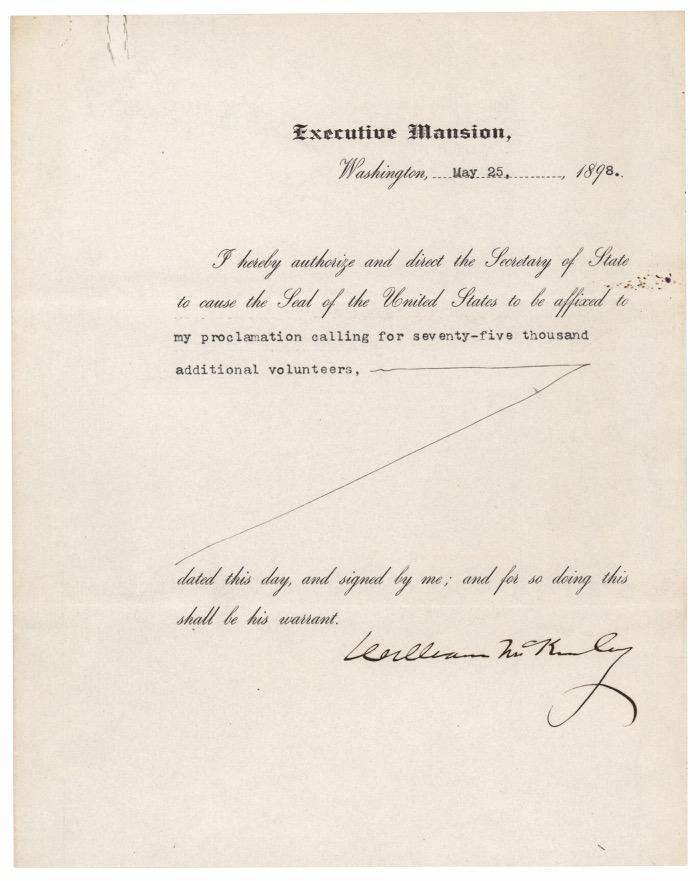 Executive Mansion,
Washington, May 25, , 1898.
I hereby authorize and direct the Secretary of State
to cause the Seal of the United States to be affixed to
my proclamation calling for seventy-five thousand
additional volunteers,
dated this day, and signed by me; and for so doing this
shall be his warrant.
William McKinley